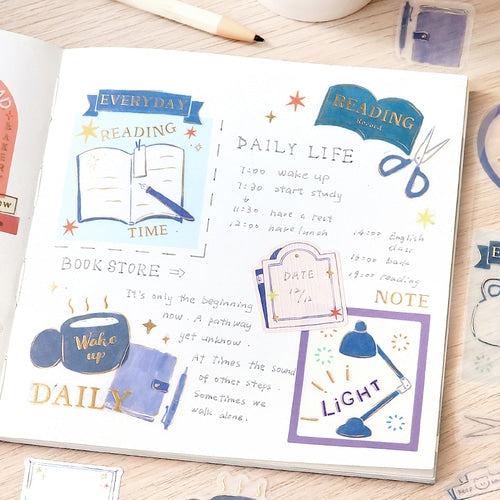 EVERYDAY
READING
TIME
READING
Record
DAILY LIFE
7:00 wake up
7:30 start study
11:30 have a rest
12:00 have lunch
14:00 English
class
18:00
19:00 reading
BOOKSTORE ⇒
It's only the beginning
now. A pathway
yet unknow.
At times the sound
of other steps.
Sometimes we
walk alone.
DATE
12/12
NOTE
Wake
up
DAILY
LiGHT